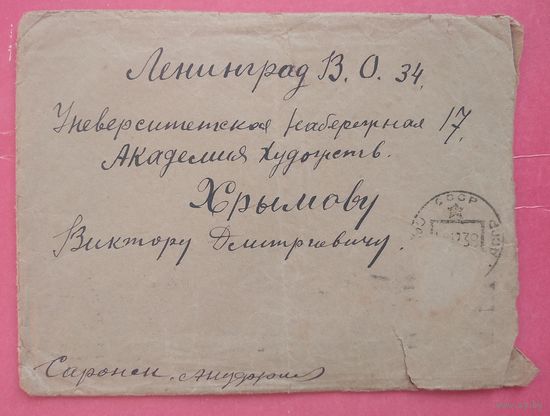 Ленинград В. О. 34.
Университетская набережная 17.
Академия Художеств.
Хрымову
Виктору Дмитриевичу.
СССР
Саронск.